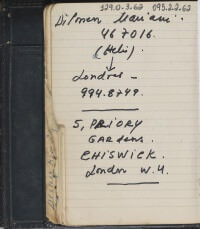 129.0.3.62 093.2.2.62
Dilman Mariani.
467016.
(Heli)
↓
Londres -
994.8749.
5, PRIORY
GARDENS.
CHISWICK.
London W.4.